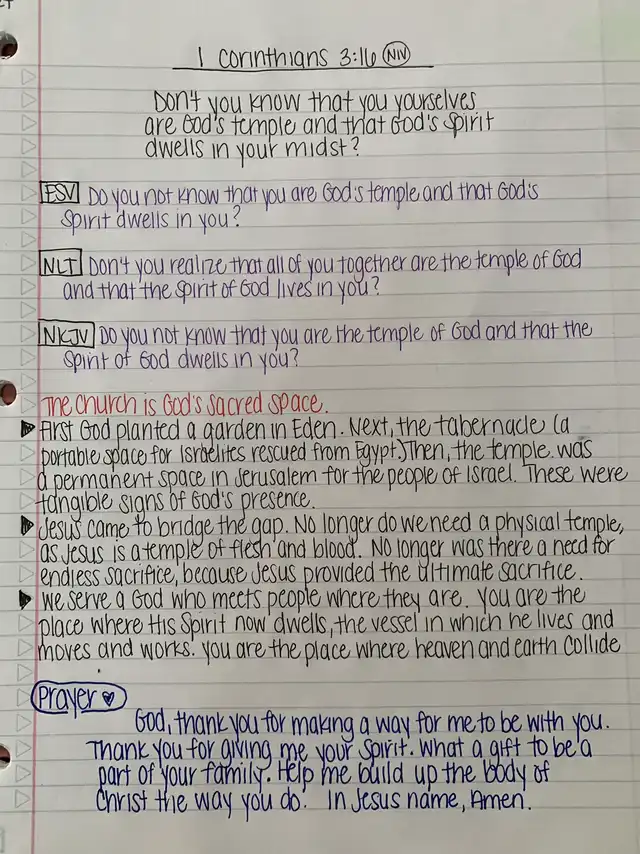 1 Corinthians 3:16 NIV
Don't you know that you yourselves
are God's temple and that God's Spirit
dwells in your midst?
ESV Do you not know that you are God's temple and that God's
Spirit dwells in you?
NLT Don't you realize that all of you together are the temple of God
and that the Spirit of God lives in you?
NKJV Do you not know that you are the temple of God and that the
Spirit of God dwells in you?
The Church is God's Sacred Space.
First God planted a garden in Eden. Next, the tabernacle (a
portable space for Israelites rescued from Egypt.) Then, the temple was
a permanent space in Jerusalem for the people of Israel. These were
tangible signs of God's presence.
Jesus came to bridge the gap. No longer do we need a physical temple,
as Jesus is a temple of flesh and blood. No longer was there a need for
endless sacrifice, because Jesus provided the ultimate sacrifice.
We serve a God who meets people where they are. You are the
place where His Spirit now dwells, the vessel in which he lives and
moves and works. You are the place where heaven and earth collide
Prayer ♥
God, thank you for making a way for me to be with you.
Thank you for giving me your Spirit. What a gift to be a
part of your family. Help me build up the body of
Christ the way you do. In Jesus name, Amen.